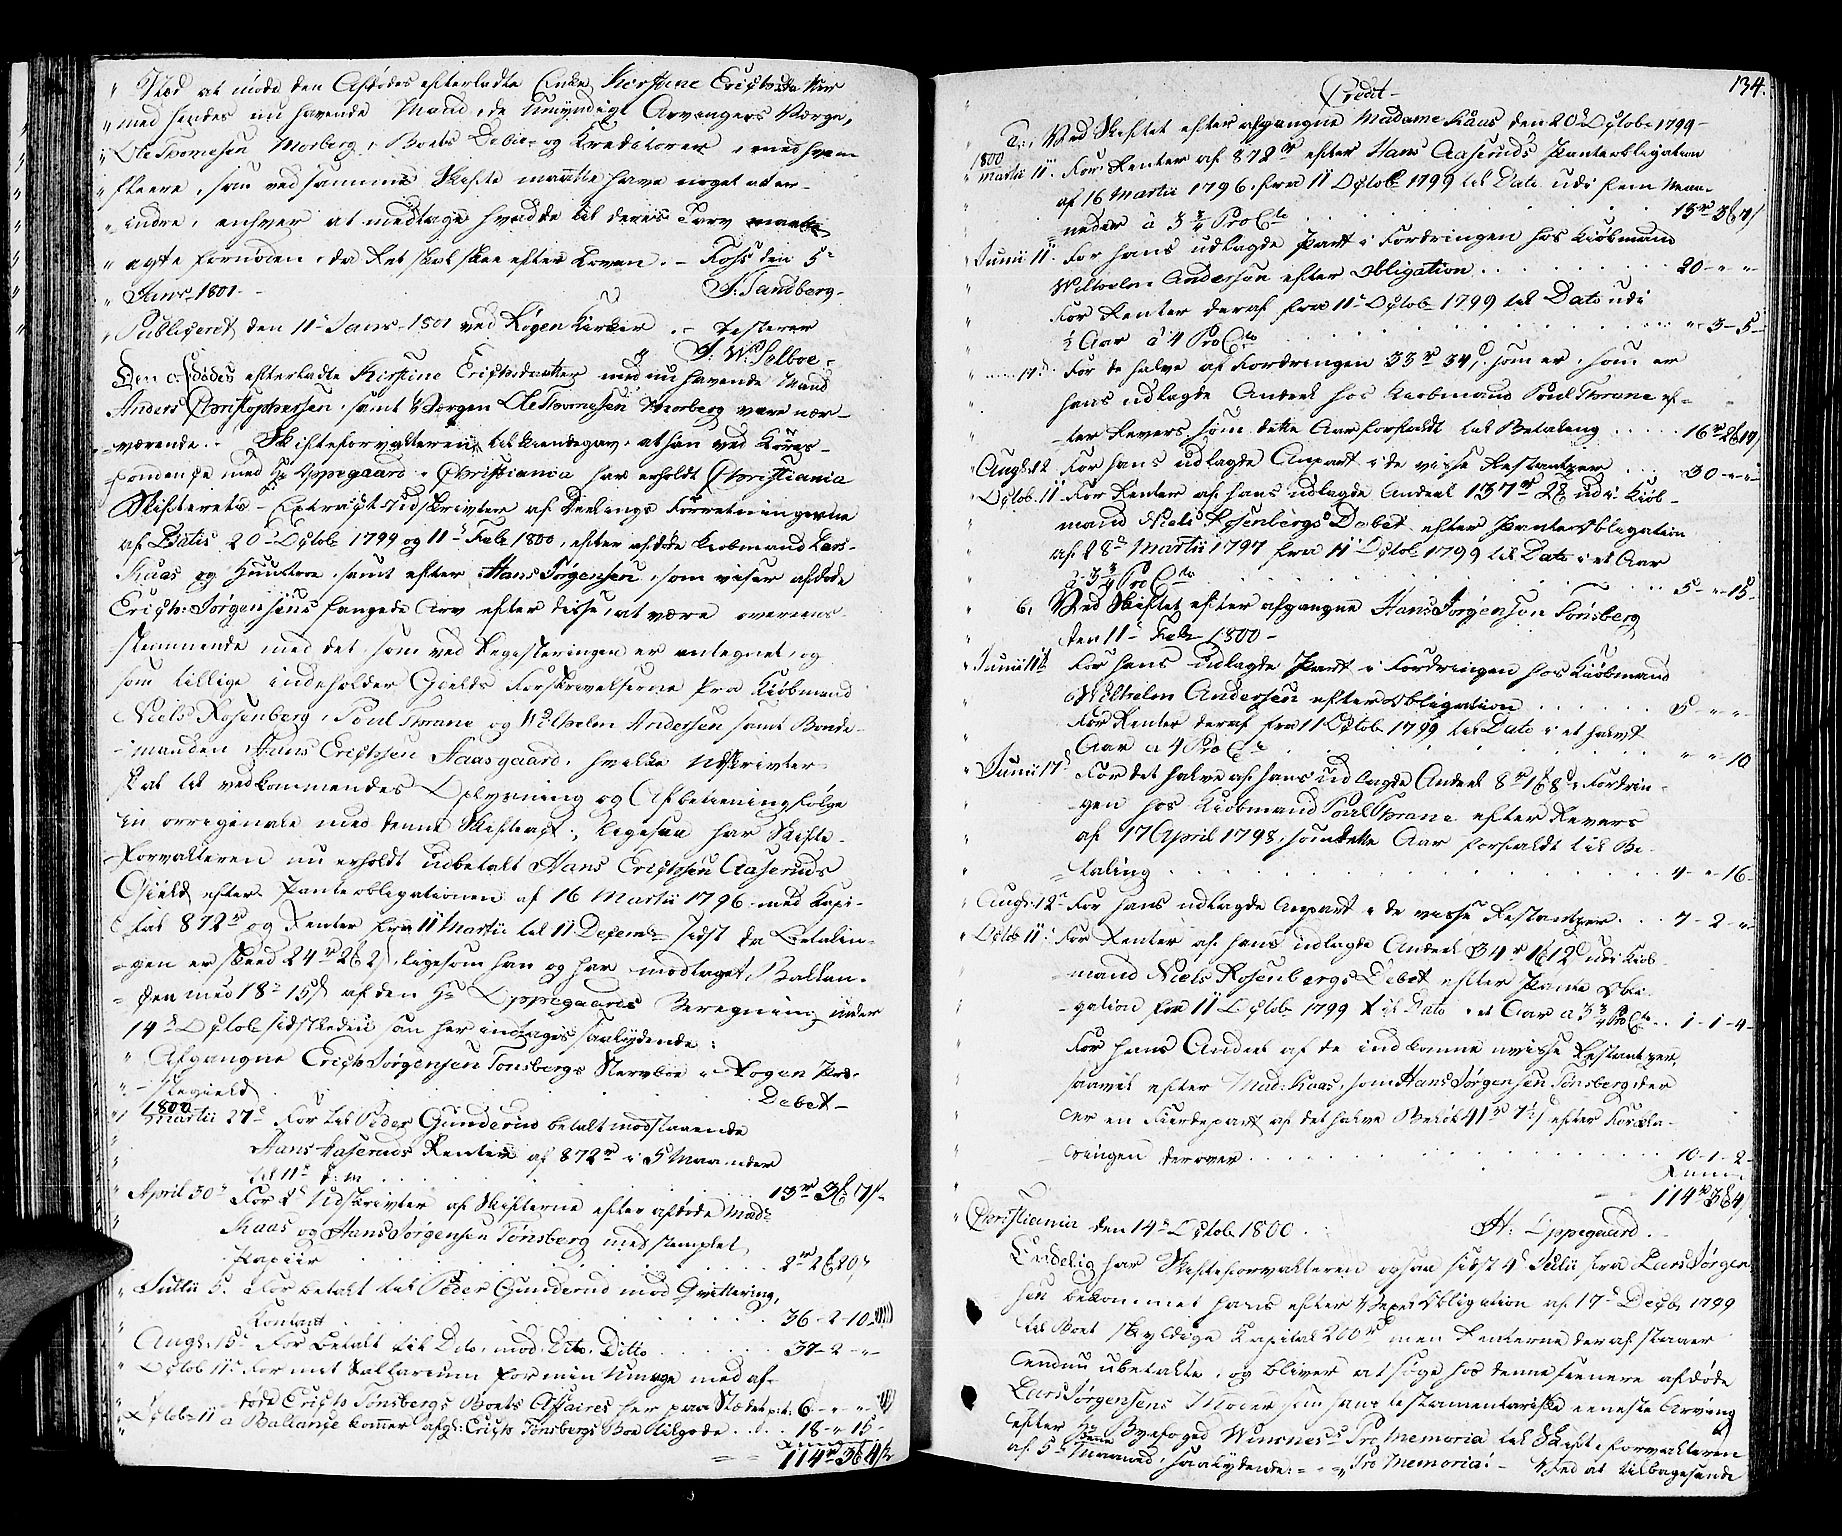 Sted at möde den Afdödes efterladte Enke Kirstine Erichsdatter
med hendes nu havende Mand, de Umyndige Arvingers Værge,
Ole Thomesen Morberg, Boets Debit- og Kreditorer, med hvem
fleere, som ved samme Skifte maatte have noget at er-
indre, enhver at medtage hvad de til deres Tarv maatte
agte fornöden, da Ret skal skee efter Loven. - Foss den 5te
Janr 1801 -
S. Sandberg.
Publiceret den 11te Janr 1801 ved Rögen Kirke. - testerer
Den afdödes efterladte Kirstine Erichsdatter med nu havende Mand
Anders Christophersen, samt Værgen Ole Thomesen Morberg vare nær-
værende. - Skifteforvalteren tilkiendegav, at han ved Korres-
pondence med Hr Oppegaard i Christiania har erholdt Christiania
Skifterets Extract-Udskrivter af Delings Forretningerne
af Datis 20de Octobr 1799 og 11te Febr 1800, efter afdöde Kiöbmand Lars
Kaas og Hustroe, samt efter Hans Jörgensen, som viser afdöde
Erich Jörgensens fangede Arv efter disse, at være overeens-
stemmende med det, som ved Registeringen er antegnet, og
som tillige indeholder Gields Forskrivelserne fra Kiöbmand
Niels Rosenberg, Poul Thrane og Wilhelm Andersen samt Bonde-
manden Hans Erichsen Haasgaard, hvilke Udskrivter
skal til vedkommendes Oplysning og Afbetiening fölge
in originale med denne Skifteact, ligesaa har Skifte-
Forvalteren nu erholdt udbetalt Hans Erichsen Aaseruds
Gield efter Panteobligationen af 16 Martii 1796 med Kapi-
tal 872 rd og Renter fra 11 Martii til 11 Decembr sidst da Betalin-
gen er skeed 24 rd 2 ß 2, ligesom han og har modtaget Ballan-
den med 18 - 15 ß af den Hr Oppegaards Beregning under
14de Octobr sidstleden som her indtages saalydende:
Afgangne Erich Jörgensen Tönsbergs Stervboe i Rögen Præ-
stegield
Debet -
1800
Martii 27de For til Peder Gunderud betalt modstaaende
Hans Aaseruds Renter af 872 rd i 5 Maaneder
til 11te d: m. . . . 13 rd 3 ß 7
April 30te For 2de Udskrivter af Skifterne efter afdöde Mad:
Kaas og Hans Jörgensen Tönsberg med stemplet
Papiir . . . 2 rd 2 ß 20
Julii 5. For betalt til Peder Gunderud mod Qvittering,
Kontant . . . 36 - 2 - 10
Augt: 15de For betalt til Dito, mod Dito, Ditto . . . 37 - 2 - "
Octobr 11te For mit Sallarium for min Umage med af-
döde Erich Tönsbergs Boets Affairer her paa Stædet 6 - " - "
Octobr 11 a Ballance kommer afg: Erich Tönsbergs Boe tilgode . . . 18 - " 15
114 rd 3 ß 4
134.
Credit -
Ved Skiftet efter afgangne Madame Kaas den 20de Octobr 1799 -
1800
Martii 11. For Renter af 872 rd efter Hans Aaseruds Panteobligation
af 16 Martii 1796 fra 11 Octobr 1799 til Dato udi fem Maa-
neder à 3 3/4 Pro Cto . . . 13 rd 3 ß 7
Junii 11. For hans udlagde Part i Fordringen hos Kiöbmand
Wilhelm Andersen efter Obligation . . . 20 - " - "
For Renter deraf fra 11te Octobr 1799 til Dato udi
1/2 Aar à 4 Pro Cto . . . " 3 - 5
17d. For de halve af Fordringen 33 rd 34, som er, som er
hans udlagde Andeel hos Kiobmand Poul Thrane ef-
ter Revers som dette Aar forfaldt til Betaling . . . 16 rd 2 ß 17
Augt: 12 For hans udlagde Anpart i de visse Restantzer . . . 30 - " - "
Octobr 11 For Renter af hans udlagde Andeel 137 rd 2 ß udi Kiöb-
mand Niels Rosenbergs Debet efter Panteobligation
af 28de Martii 1797 fra 11te Octobr 1799 til Dato i et Aar
à 3 3/4 Pro Cto . . . 5 - " - 15
6, Ved Skiftet efter afgangne Hans Jörgensen Tönsberg
den 11te Febr 1800 -
Junii 11te For hans udlagde Part i Fordringen hos Kiöbmand
Wilhelm Andersen efter Obligation . . . 5 - " - "
For Renter deraf fra 11 Octobr 1799 til Dato i et halvt
Aar à 4 Pro Cto . . . " - " 10
Junii 17d For det halve af hans udlagde Andeel 8 rd 1 ß 8 i Fordrin-
gen hos Kiöbmand Poul Thrane efter Revers
af 17 April 1798, som dette Aar forfaldt til Be-
taling . . . 4 - " - 16
Augt: 12te For hans udlagde Anpart i de visse Restantzer . . . 7 - 2 - "
Octobr 11. For Renter af hans udlagde Andeel 34 rd 1 ß 12 udi Kiöb-
mand Niels Rosenbergs Debet efter Pante Obli-
gation fra 11 Octobr 1799 til Dato i et Aar à 3 3/4 Pro Cto . . 1 - 1 - 4
For hans Andeel af de indkomne uvisse Restantzer,
saavel efter Mad: Kaas, som Hans Jörgensen Tönsberg der
er en Fierdepart af det halve Belöb 41 rd 7 ß efter Forkla-
ringen derover . . . 10 - 1 - 2
114 rd 3 ß 4
Christiania den 14de Octobr 1800.
H. Oppegaard.
Endelig har Skifteforvalteren ogsaa sidst 4de Julii fra Lars Jörgen-
sen bekommet hans efter Vexel Obligation af 17de Decbr 1799
til Boet skyldige Kapital 200 rd men Renterne deraf staaer
endnu ubetalte, og bliver at söge hos denne seenere afdöde
Lars Jörgensens Moder som hans testamentariske eeneste Arving
efter Hr Byefoged Wincness Pro Memoria til Skifteforvalteren
af 5te denne Maaned, saalydende: - "Pro Memoria! - Ved at tilbagesende